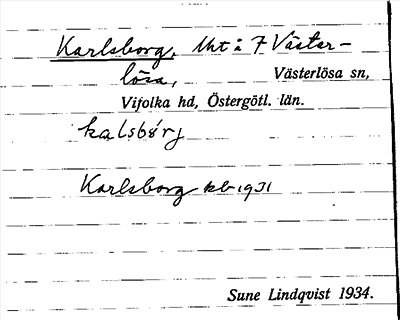 Karlsborg, Uht i 7 Väster-
lösa, Västerlösa sn,
Vifolka hd, Östergötl. län.
kalsbórj
Karlsborg kb 1931
Sune Lindqvist 1934.